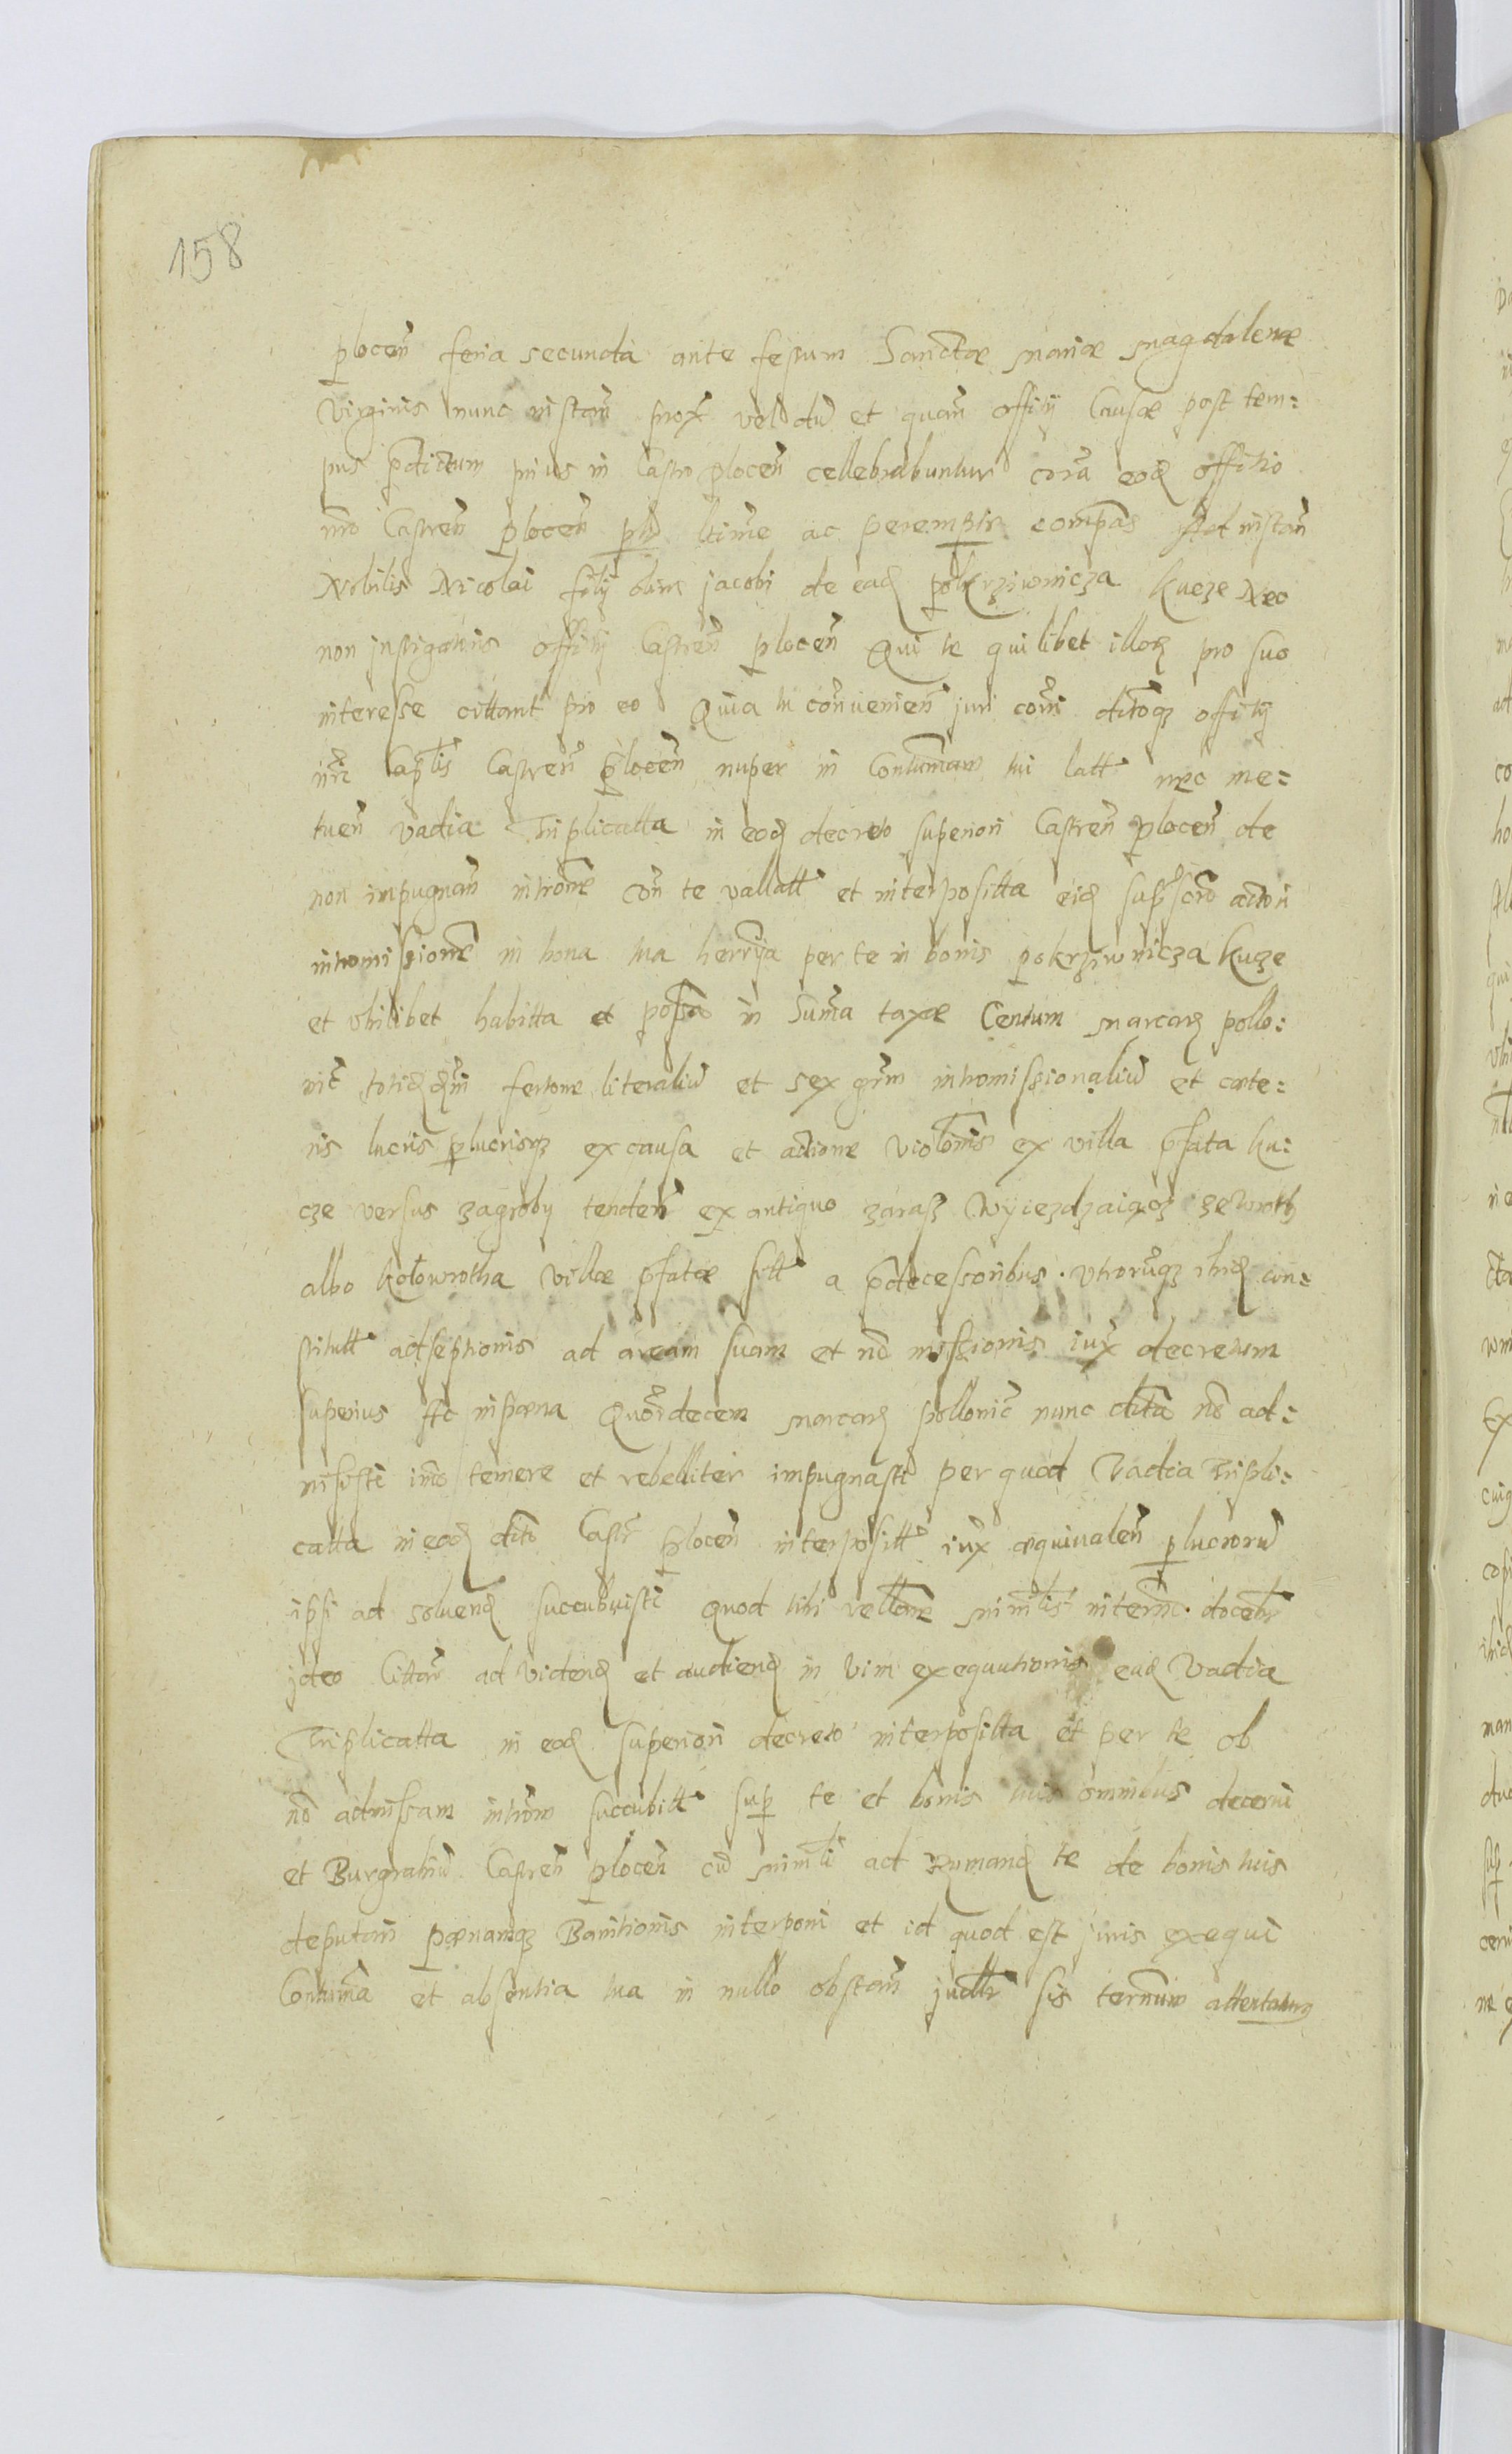 158
plocen̄ feria secunda ante festum Sanctæ Mariæ Magdalenæ
Virginis nunc instan̄ prox̄ vel dū et quan̄ offitij Causæ post tem:
pus p̄dictum prius in Castro plocen̄ cellebrabuntur corā eod̄ offitio
nr̄o Castren̄ plocen̄ ltime ac peremptr̄ compās Ad instan̄
Nobilis Nicolai filij olim jacobi de ead̄ pokrziwnicza kucze Nec
non instigatoris offitij Castren̄ plocen̄ Qui te quilibet illor̄ pro suo
interesse cittant pro eo Quia tu convenien̄ juri com̄i dictoqȝ offitij
nr̄i Cap̄lis Castren̄ plocen̄ nuper in Contumam̄ tui latt nec me:
tuen̄ vadia Triplicatta in eod̄ decreto superiori Castren̄ plocen̄ de
non impugnan̄ intron̄e con̄ te vallatt et interpositta eid̄ supscr̄o actori
intromissionē in bona tua herr̄ia per te in bonis pokrziwnicza kucze
et vbilibet habitta et posšā in Sum̄a taxæ Centum marcar̄ pollo:
nic̄ totid̄qm̄ fertone literaliū et sex grm intromissionaliū et cæte:
ris lucris plucrisqȝ ex causa et actione violōnis ex villa p̄fata ku:
cze versus zagroby tenden̄ ex antiquo zarasz wyiezdzaiqcz ze wroth
albo kołowrotha villæ p̄fatæ sitt a p̄decessoribus vtrorūqȝ ibid̄ con:
stitutt adseptionis ad aream suam et nō missionis iux̄ decretum
superius ffc in pæna Quor̄decem marcar̄ pollonic̄ nunc dictā nō ad:
misisti imō temere et rebelliter impugnasti per quod Vadia Tripli:
catta in ead̄ dicto Castr̄ plocen̄ interpositt iux̄ æquivalen̄ plucrorū
ipsi ad soluend̄ succubuisti quod tibi rellōne min̄lis in term̄o docebr̄
jdeo Cittar̄ ad videnđ et audienđ in vim exequutionis ead̄ Vadia
Triplicatta in eod̄ superiori decreto interpositta et per te ob
nō admissam intrōm succubitt sup te et bonis tuis omnibus decerni
et Burgrabiū Castren̄ plocen̄ cū min̄li ad Rumanđ te de bonis tuis
deputari pænamqȝ Banitionis interponi et id quod est juris exequi
Contumā et absentia tua in nullo obstan̄ judltr̄ sis termīnum attentaturus